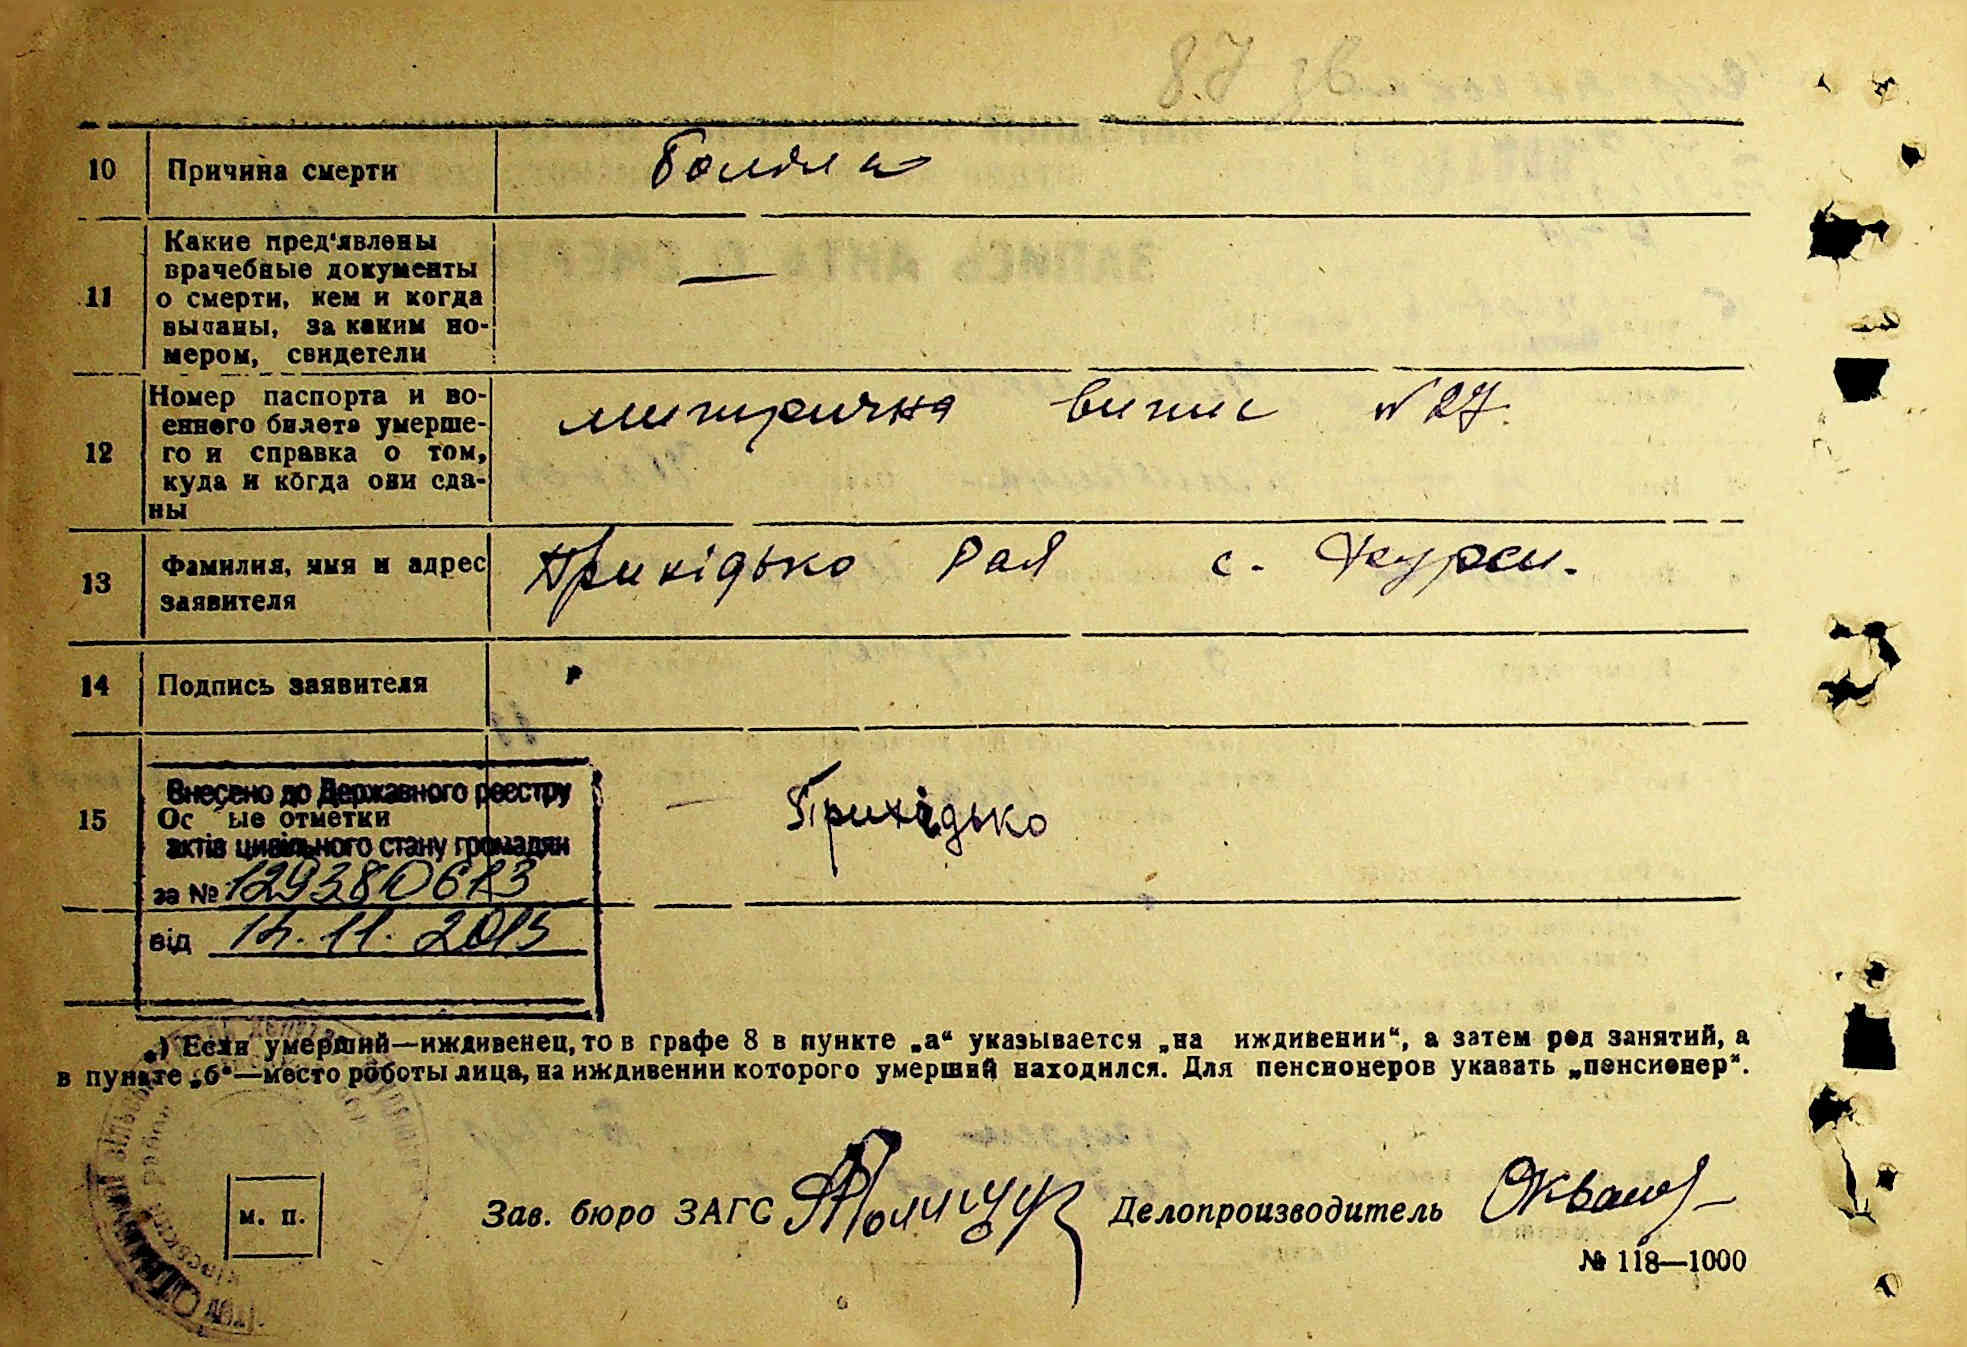 10 Причина смерти
11 Какие пред'явлены
врачебные документы
о смерти, кем и когда
выданы, за каким но-
мером, свидетели
—
12 Номер паспорта и во-
енного билета умерше-
го и справка о том,
куда и когда они сда-
ны
митрична випис №27.
13 Фамилия, имя и адрес
заявителя
Прихідько Рая с.
14 Подпись заявителя
15 Ос ые отметки
— Прихідько
Внесено до Державного реєстру
актів цивільного стану громадян
за №
від 11. 2015
„) Если умерший—иждивенец, то в графе 8 в пункте „а“ указывается „на иждивении“, а затем род занятий, а
в пункте „б“—место роботы лица, на иждивении которого умерший находился. Для пенсионеров указать „пенсионер“.
м. п.
Зав. бюро ЗАГС Поліщук Делопроизводитель
№ 118—1000